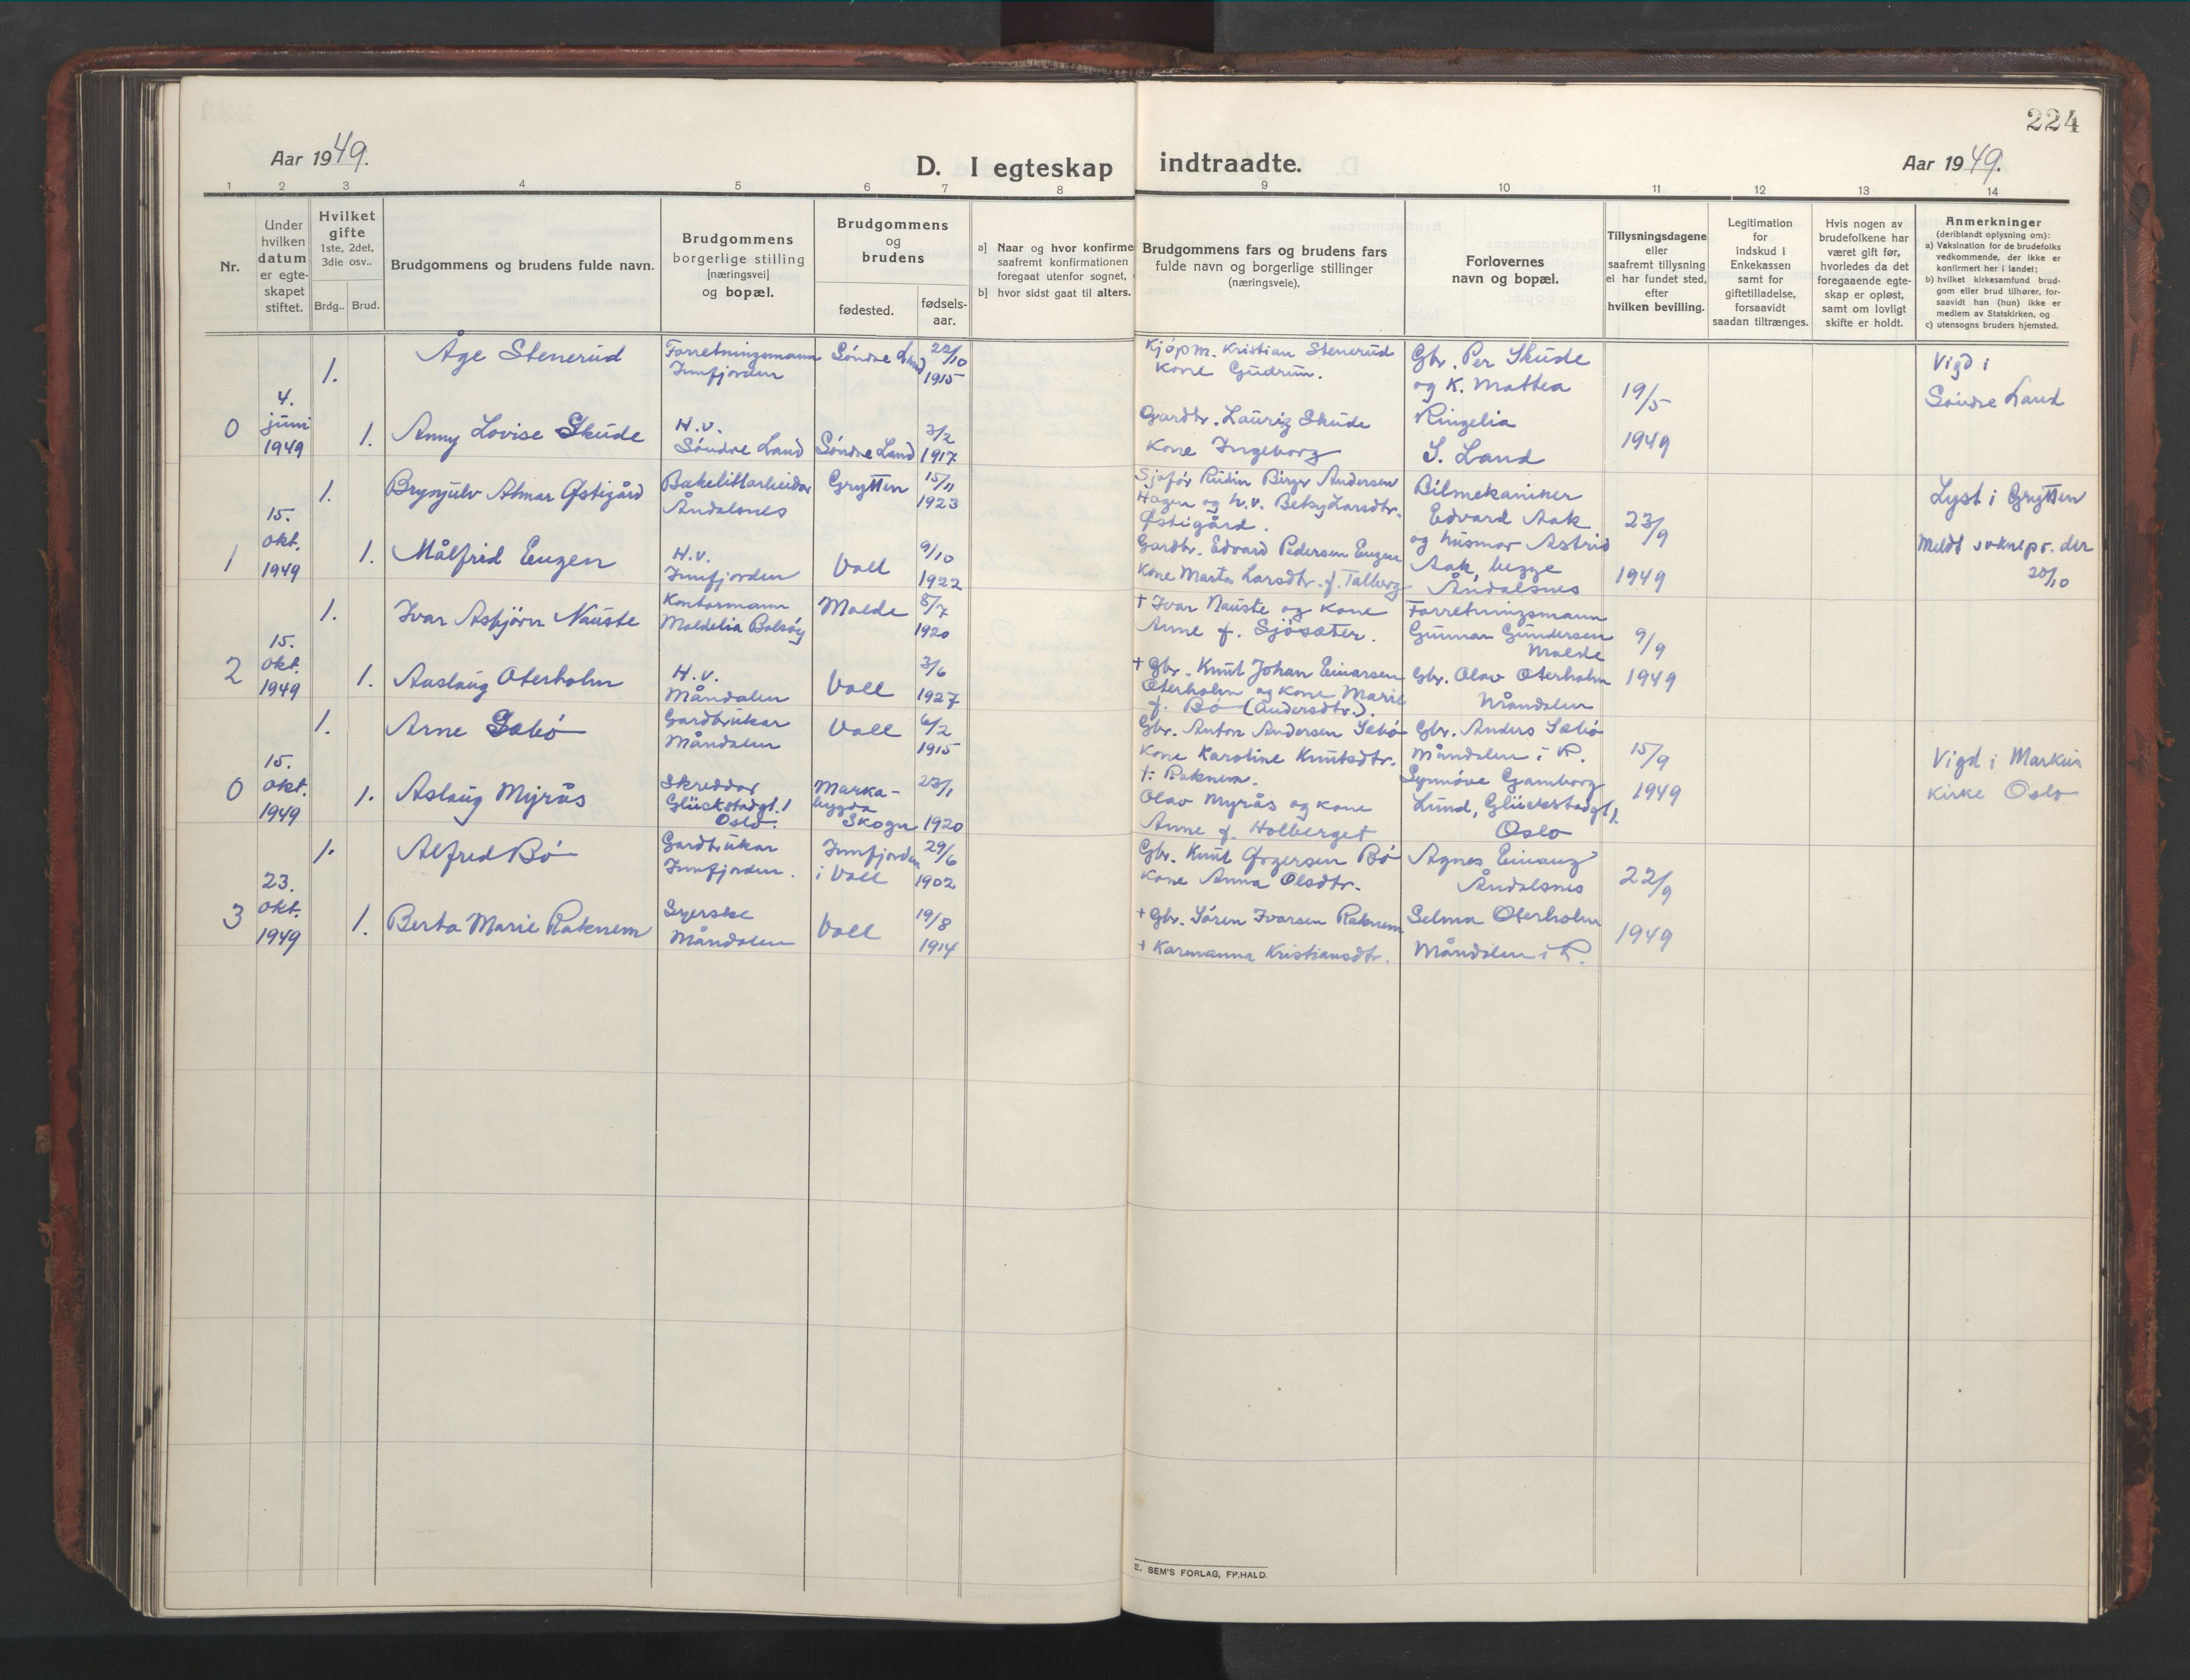 224
Aar 1949.
D. I egteskap indtraadte.
Aar 1949.
1 2 3 4 5 6 7 8 9 10 11 12 13 14
Nr.
Under
hvilken
datum
er egte-
skapet
stiftet.
Hvilket
gifte
1ste, 2det,
3die osv..
Brdg.. Brud.
Brudgommens og brudens fulde navn.
Brudgommens
borgerlige stilling
[næringsvei]
og bopæl.
Brudgommens
og
brudens
fødested.
fødsels-
aar.
a] Naar og hvor konfirme
saafremt konfirmationen
foregaat utenfor sognet,
b] hvor sidst gaat til alters.
Brudgommens fars og brudens fars
fulde navn og borgerlige stillinger
(næringsveie).
Forlovernes
navn og bopæl.
Tillysningsdagene
eller
saafremt tillysning
ei har fundet sted,
efter
hvilken bevilling.
Legitimation
for
indskud i
Enkekassen
samt for
giftetilladelse,
forsaavidt
saadan tiltrænges.
Hvis nogen av
brudefolkene har
været gift før,
hvorledes da det
foregaaende egte-
skap er opløst,
samt om lovligt
skifte er holdt.
Anmerkninger
(deriblandt oplysning om):
a) Vaksination for de brudefolks
vedkommende, der ikke er
konfirmert her i landet;
b) hvilket kirkesamfund brud-
gom eller brud tilhører, for-
saavidt han (hun) ikke er
medlem av Statskirken, og
c) utensogns bruders hjemsted.
0
4.
juni
1949
1.
Åge Stenerud
Forretningsmann
Innfjorden
Söndre Land
22/10
1915
Kjöpm. Kristian Stenerud
Kone Gudrun.
Gbr. Per Skude
og K. Mattea
Ringelia
S. Land
19/5
1949
Vigd i
Söndre Land
1.
Anny Lovise Skude
H.v.
Söndre Land
Söndre Land
3/2
1917
Gardbr. Lauriz Skude
Kone Ingeborg
1
15.
okt.
1949
1.
Brynjulv Almar Østigård
Bakelittarbeidar
Åndalsnes
Grytten
15/11
1923
Sjåför Rudin Birger Andersen
Hagen og h.v. Betsy Larsdtr.
Østigård.
Bilmekaniker
Edvard Aak
og husmor Astrid
Aak, begge
Åndalsnes
23/9
1949
Lyst i Grytten
Meldt soknepr. der
20/10
1.
Målfrid Engen
H.v.
Innfjorden
Voll
9/10
1922
Gardbr. Edvard Pedersen Engen
Kone Marta Larsdtr. f. Talberg
2
15.
okt.
1949
1.
Ivar Asbjörn Nauste
Kontormann
Moldelia Bolsöy
Molde
8/7
1920
+ Ivar Nauste og kone
Anne f. Sjösæter.
Forretningsmann
Gunnar Gundersen
Molde
Gbr. Olav Oterholm
Måndalen
9/9
1949
1.
Aaslaug Oterholm
H.v.
Måndalen
Voll
3/6
1927
+ Gbr. Knut Johan Einarsen
Oterholm og kone Marie
f. Bö (Andersdtr.).
0
15.
okt.
1949
1.
Arne Sæbö
Gardbrukar
Måndalen
Voll
6/2
1915
Gbr. Anton Andersen Sæbö
Kone Karoline Knutsdtr.
f. Raknem.
Gbr. Anders Sæbö
Måndalen i R.
Synnöve Gamborg
Lund, Glückstadgt 1.
Oslo
15/9
1949
Vigd i Markus
Kirke Oslo
1.
Aslaug Myrås
Skreddar
Glückstadgt. 1
Oslo.
Marka-
bygda
Skogn
23/1
1920
Olav Myrås og kone
Anne f. Holberget
3
23.
okt.
1949
1.
Alfred Bö
Gardbrukar
Innfjorden.
Innfjorden
i Voll
29/6
1902
Gbr. Knut Gregersen Bö
Kone Anna Olsdtr.
Agnes Einang
Åndalsnes
Selma Oterholm
Måndalen i R.
22/9
1949
1.
Berta Marie Raknem
Syerske
Måndalen
Voll
19/8
1914
+ Gbr. Sören Ivarsen Raknem
+ Karenanna Kristiansdtr.
E. SEM'S FORLAG, FR.HALD.